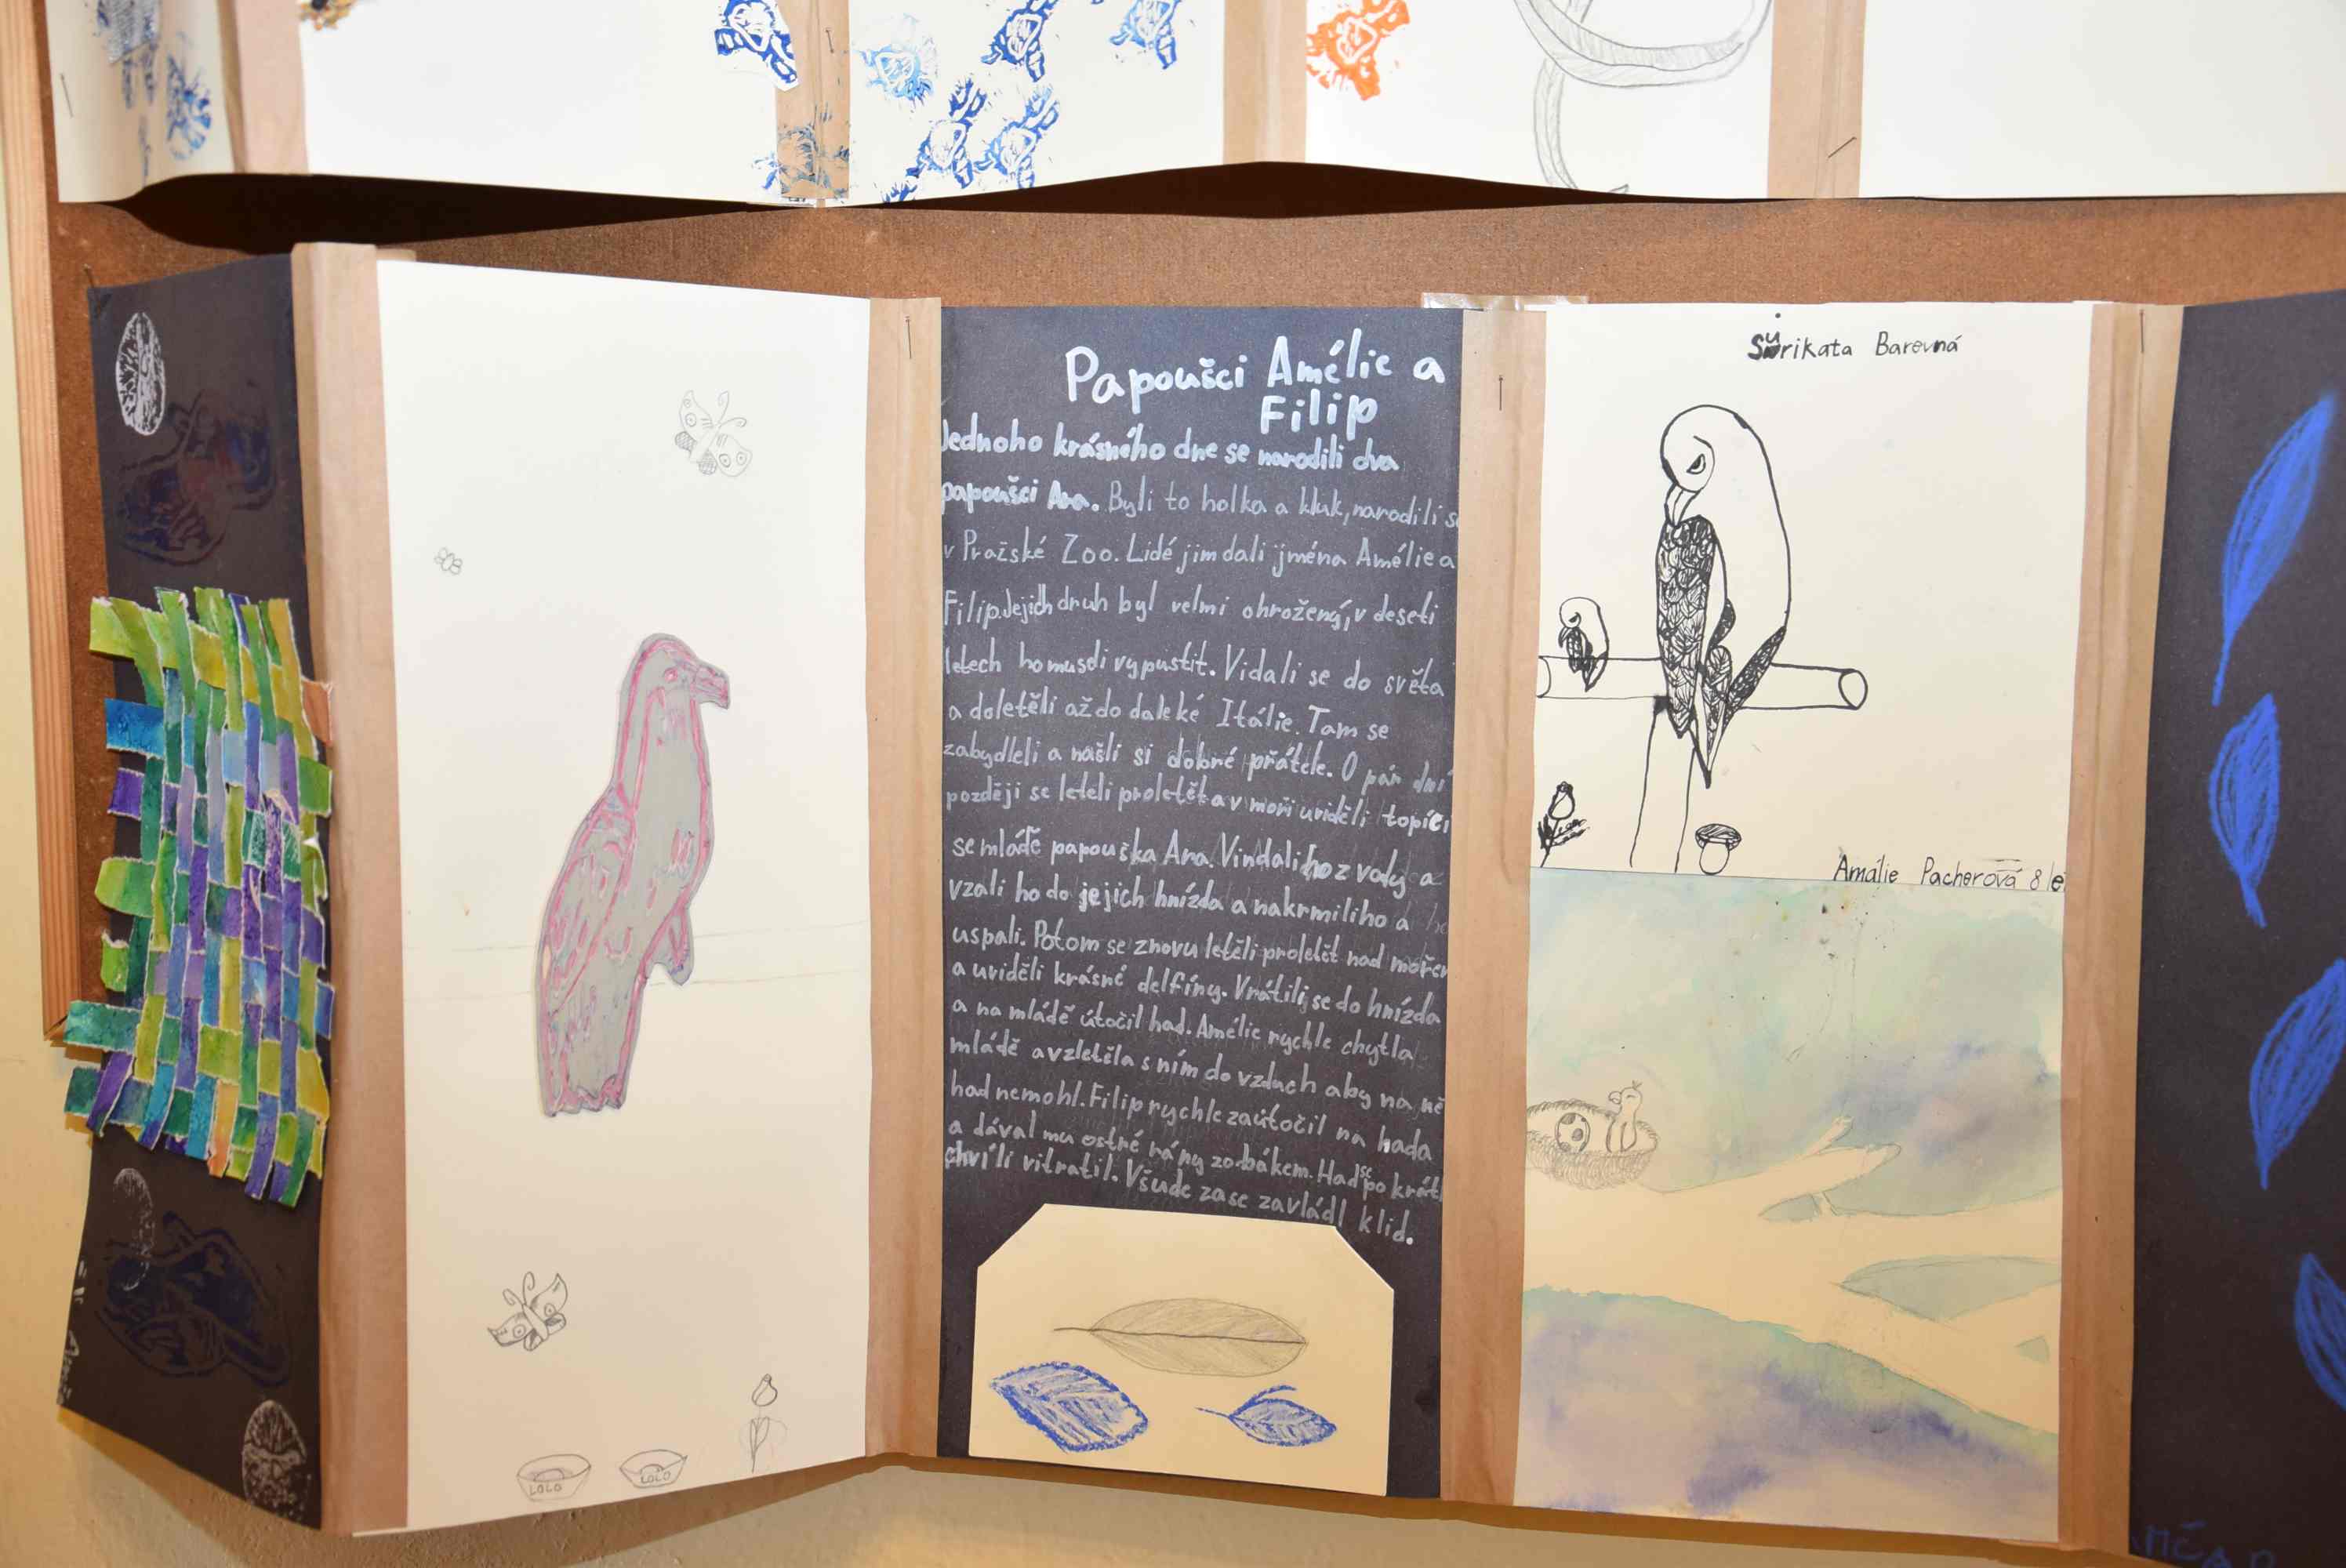 Papoušci Amélie a
Filip
Jednoho krásného dne se narodili dva
papoušci Ara. Byli to holka a kluk, narodili se
v Pražské Zoo. Lidé jim dali jména Amélie a
Filip. Jejich druh byl velmi ohrožený, v deseti
letech ho museli vypustit. Vidali se do světa
a doletěli až do daleké Itálie. Tam se
zabydleli a našli si dobré přátele. O pár dní
později se letěli proletět a v moři uviděli topící
se mládě papouška Ara. Vindali ho z vody a
vzali ho do jejich hnízda a nakrmili ho a
uspali. Potom se znovu letěli proletět nad mořem
a uviděli krásné delfíny. Vrátili se do hnízda
a na mládě útočil had. Amélie rychle chytla
mládě a vzletěla s ním do vzduch aby na ně
had nemohl. Filip rychle zaútočil na hada
a dával mu ostré rány zobákem. Had se po krátk
chvíli vitratil. Všude zase zavládl klid.
Surikata Barevná
Amálie Pacherová 8 le
LOLO
LOLO